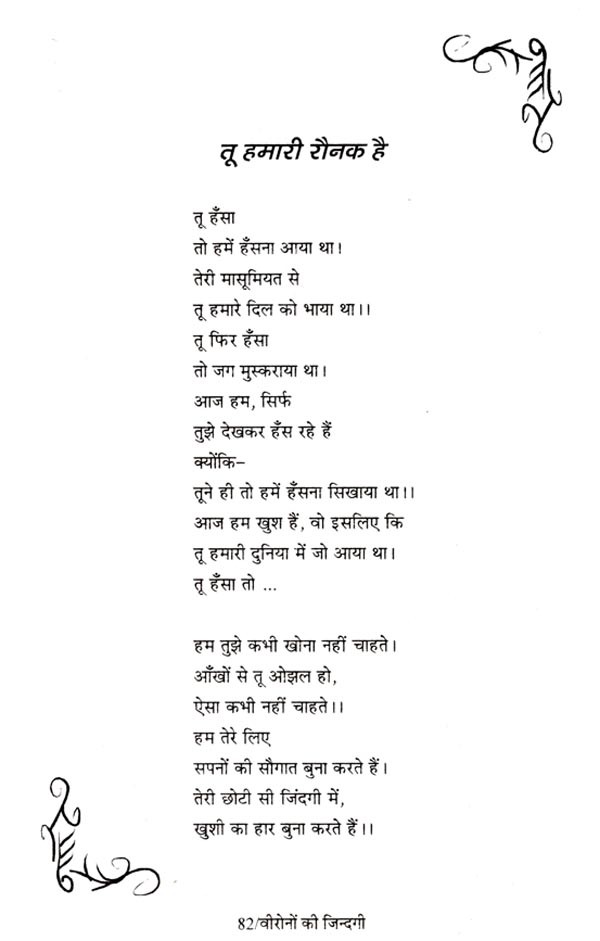 तू हमारी रौनक है
तू हँसा
तो हमें हँसना आया था।
तेरी मासूमियत से
तू हमारे दिल को भाया था।।
तू फिर हँसा
तो जग मुस्कराया था।
आज हम, सिर्फ
तुझे देखकर हँस रहे हैं
क्योंकि–
तूने ही तो हमें हँसना सिखाया था।।
आज हम खुश हैं, वो इसलिए कि
तू हमारी दुनिया में जो आया था।
तू हँसा तो ...
हम तुझे कभी खोना नहीं चाहते।
आँखों से तू ओझल हो,
ऐसा कभी नहीं चाहते।।
हम तेरे लिए
सपनों की सौगात बुना करते हैं।
तेरी छोटी सी जिंदगी में,
खुशी का हार बुना करते हैं।।
82/वीरोनों की जिन्दगी